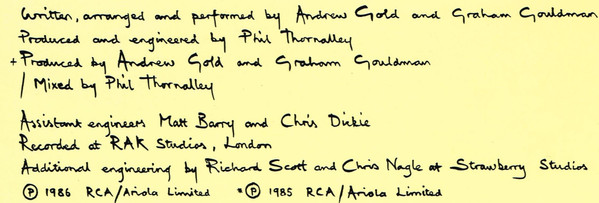 Written, arranged and performed by Andrew Gold and Graham Gouldman
Produced and engineered by Phil Thornalley
+ Produced by Andrew Gold and Graham Gouldman
/ Mixed by Phil Thornalley
Assistant engineers Matt Barry and Chris Dickie
Recorded at RAK Studios, London
Additional engineering by Richard Scott and Chris Nagle at Strawberry Studios
Ⓟ 1986 RCA/Ariola Limited *Ⓟ 1985 RCA/Ariola Limited